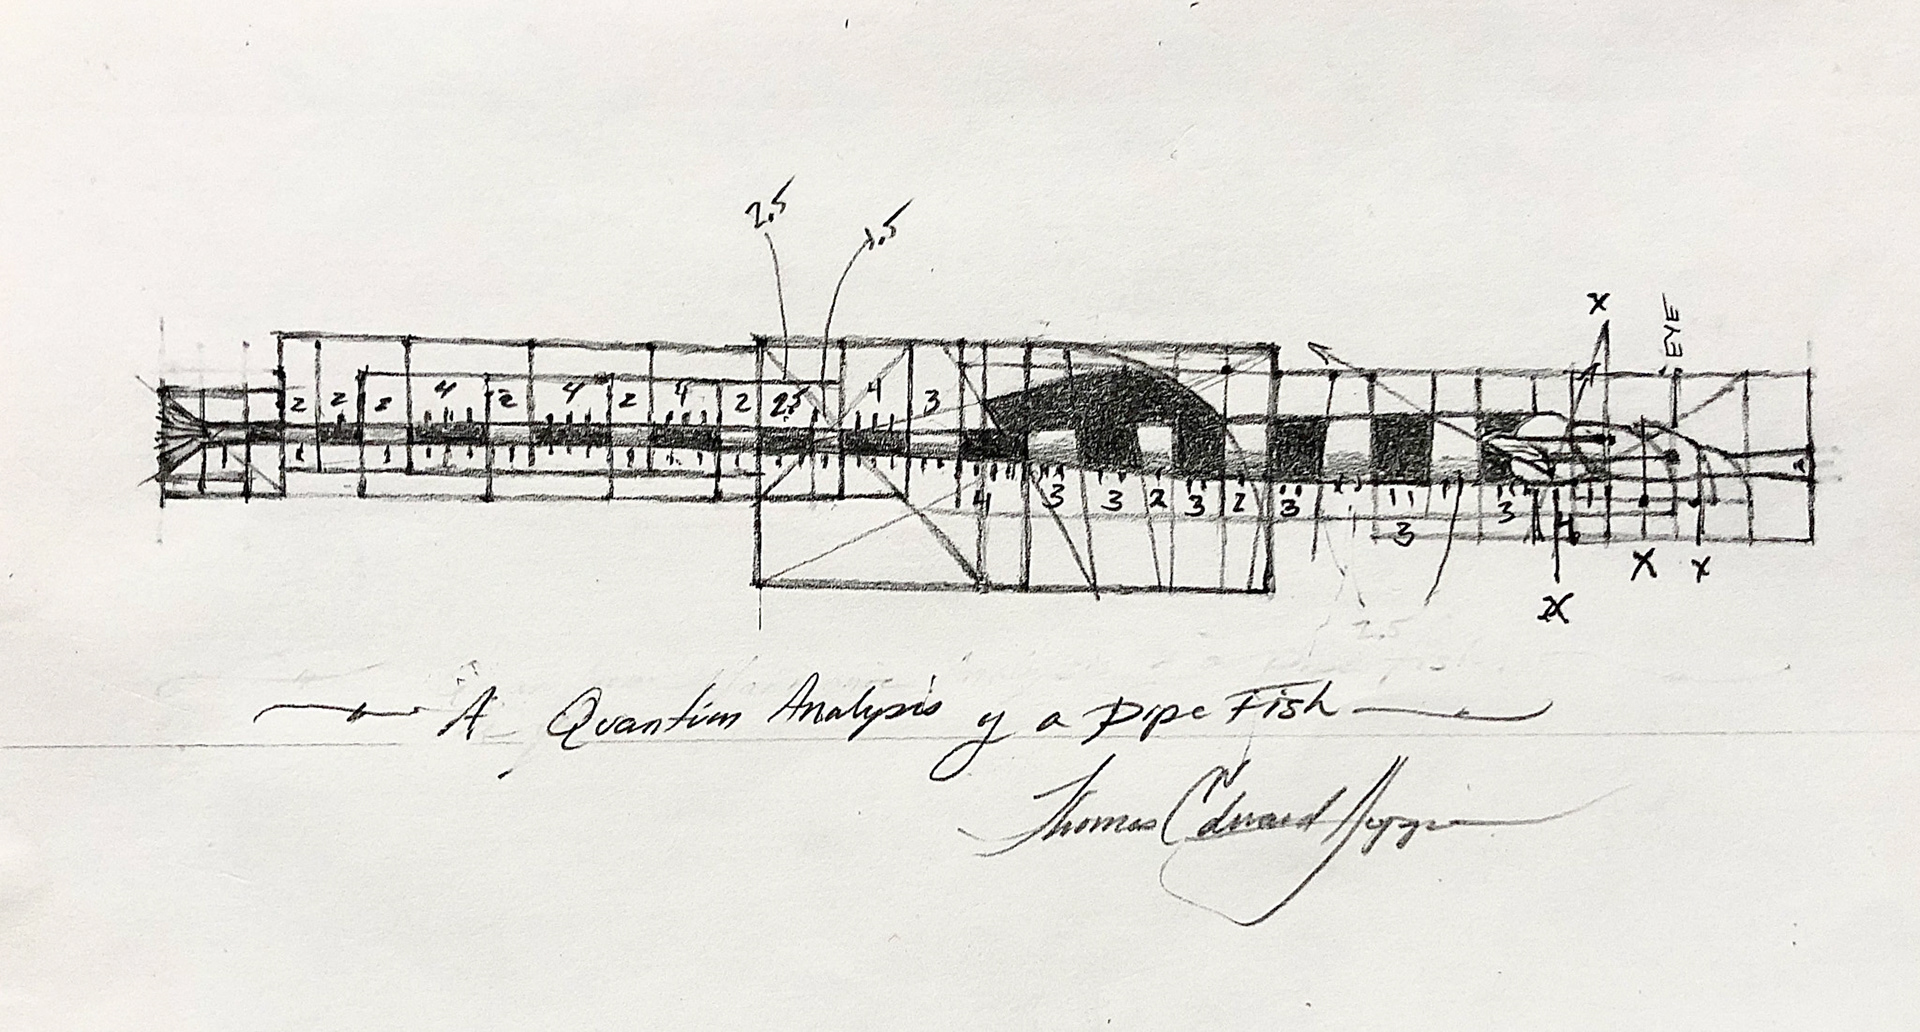 2.5
1.5
X
EYE
2 2 2 4 2 4 2 4 2 2.5 4 3
4 3 3 2 3 2 3 3 3 4
X X
2X
2.5
A Quantum Analysis of a Pipe Fish
Thomas Edward